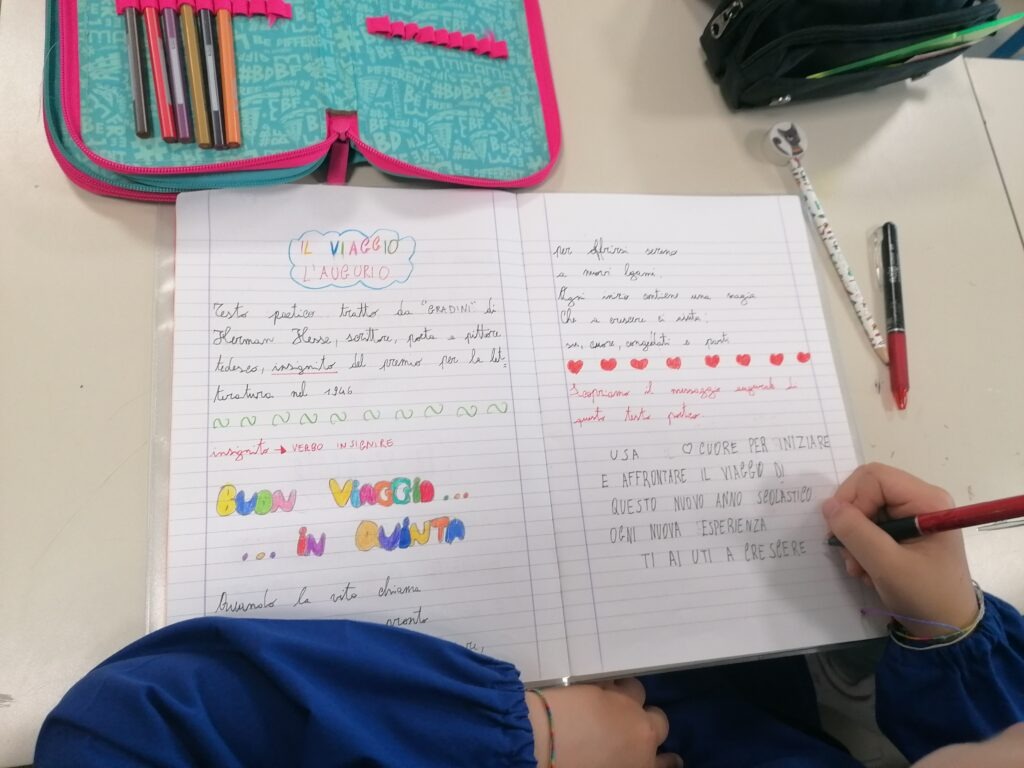 IL VIAGGIO
L'AUGURIO
Testo poetico tratto da "GRADINI" di
Herman Hesse, scrittore, poeta e pittore
tedesco, insignito del premio per la let-
teratura nel 1946
insignito → VERBO INSIGNIRE
BUON VIAGGIO...
... IN QUINTA
Quando la vita chiama
pronto
per offrirsi sereno
a nuovi legami.
Ogni inizio contiene una magia
Che a crescere ci aiuta:
su, cuore, congedati e parti
Scopriamo il messaggio
questo testo poetico
USA ♡ CUORE PER INIZIARE
E AFFRONTARE IL VIAGGIO DI
QUESTO NUOVO ANNO SCOLASTICO
OGNI NUOVA ESPERIENZA
TI AI UTI A CRESCERE